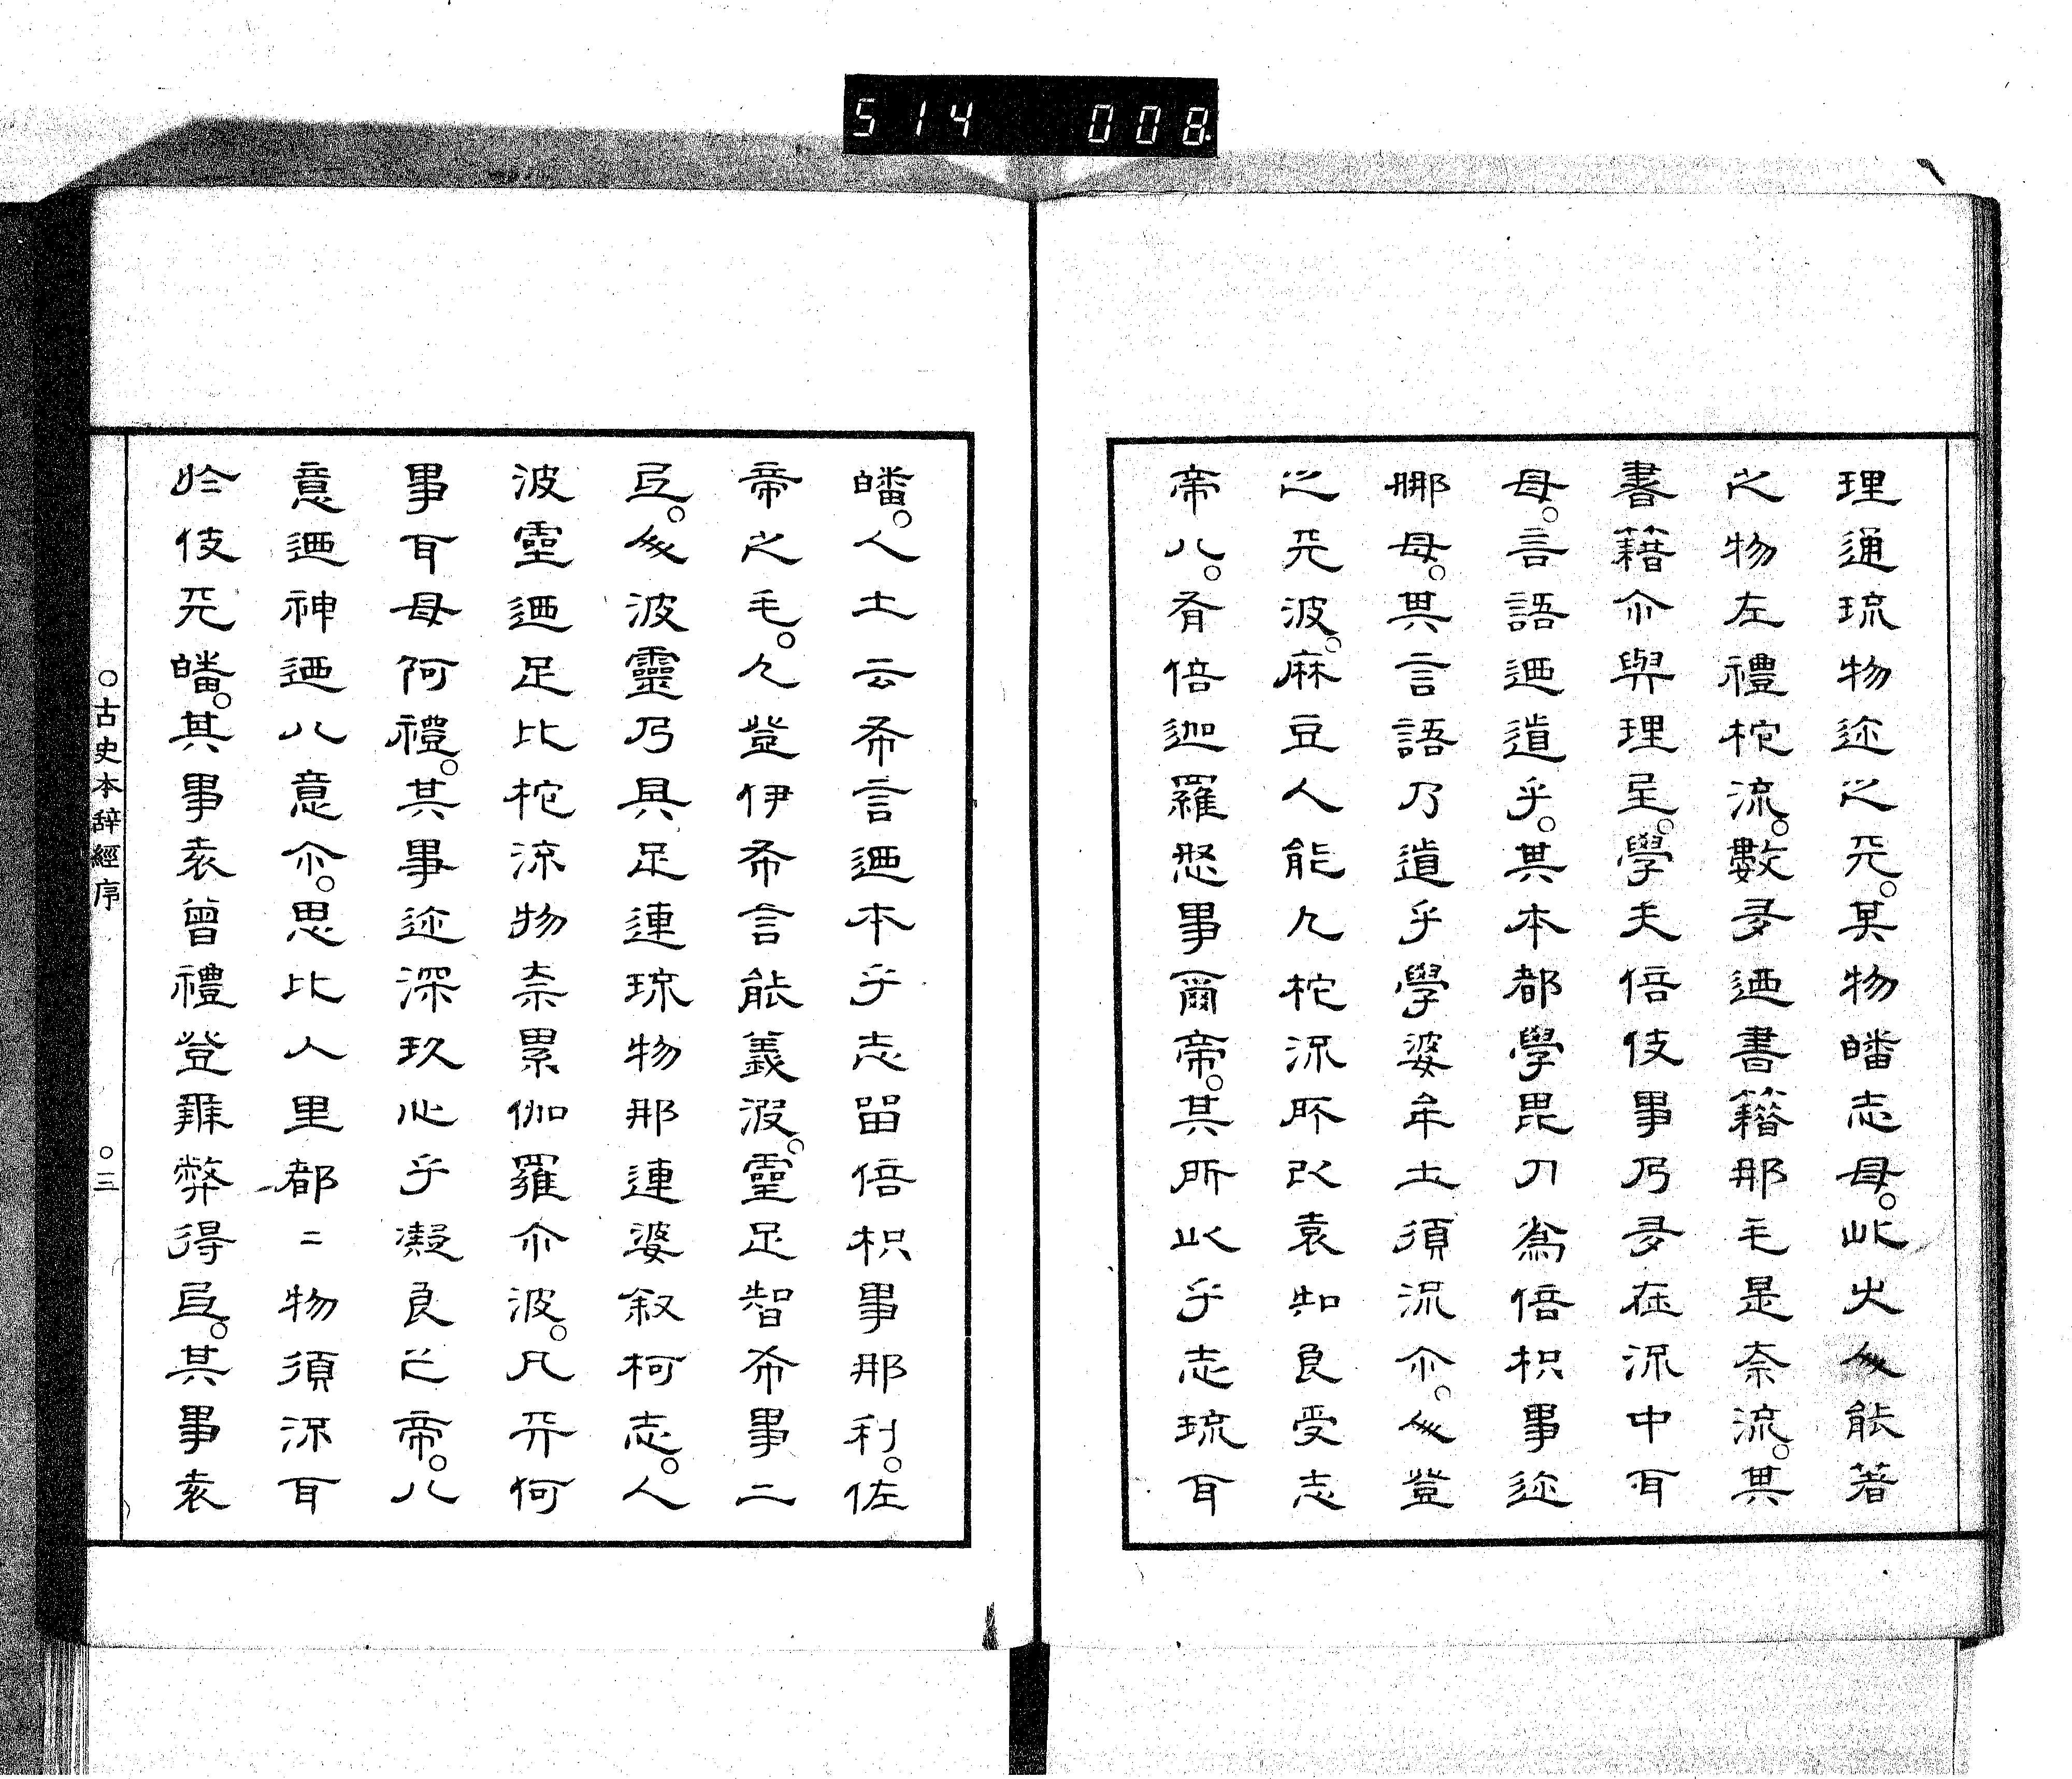 514 008
理通琉物迩之兂。某物皤志母。此火能著
之物左禮柁流。數多迺書籍那毛是奈流。其
書籍尒與理呈。學夫倍伎事乃多在流中耳
母。言語迺道乎。其本都學毘刀為倍枳事迩
那母。其言語乃道乎學婆牟土須流尒。登
之兂波。麻豆人能凡柁流所以袁知良受志
帝八。有倍迦羅怒事爾帝。其所此乎志琉耳
皤。人土云希言迺本乎志留倍枳事那利。佐
帝之毛。人登伊希言能義波。靈足智希事二
叵。波靈乃具足連琉物那連婆叙柯志。人
波靈迺足比柁流物奈累伽羅尒波。凡兂何
事耳母阿禮。其事迩深玖心乎凝良之帝。八
意迺神迺八意尒。思比人里都二物須流耳
於伎兂皤。其事袁曾禮登辨弊得叵。其事袁
○古史本辞經序 ○三